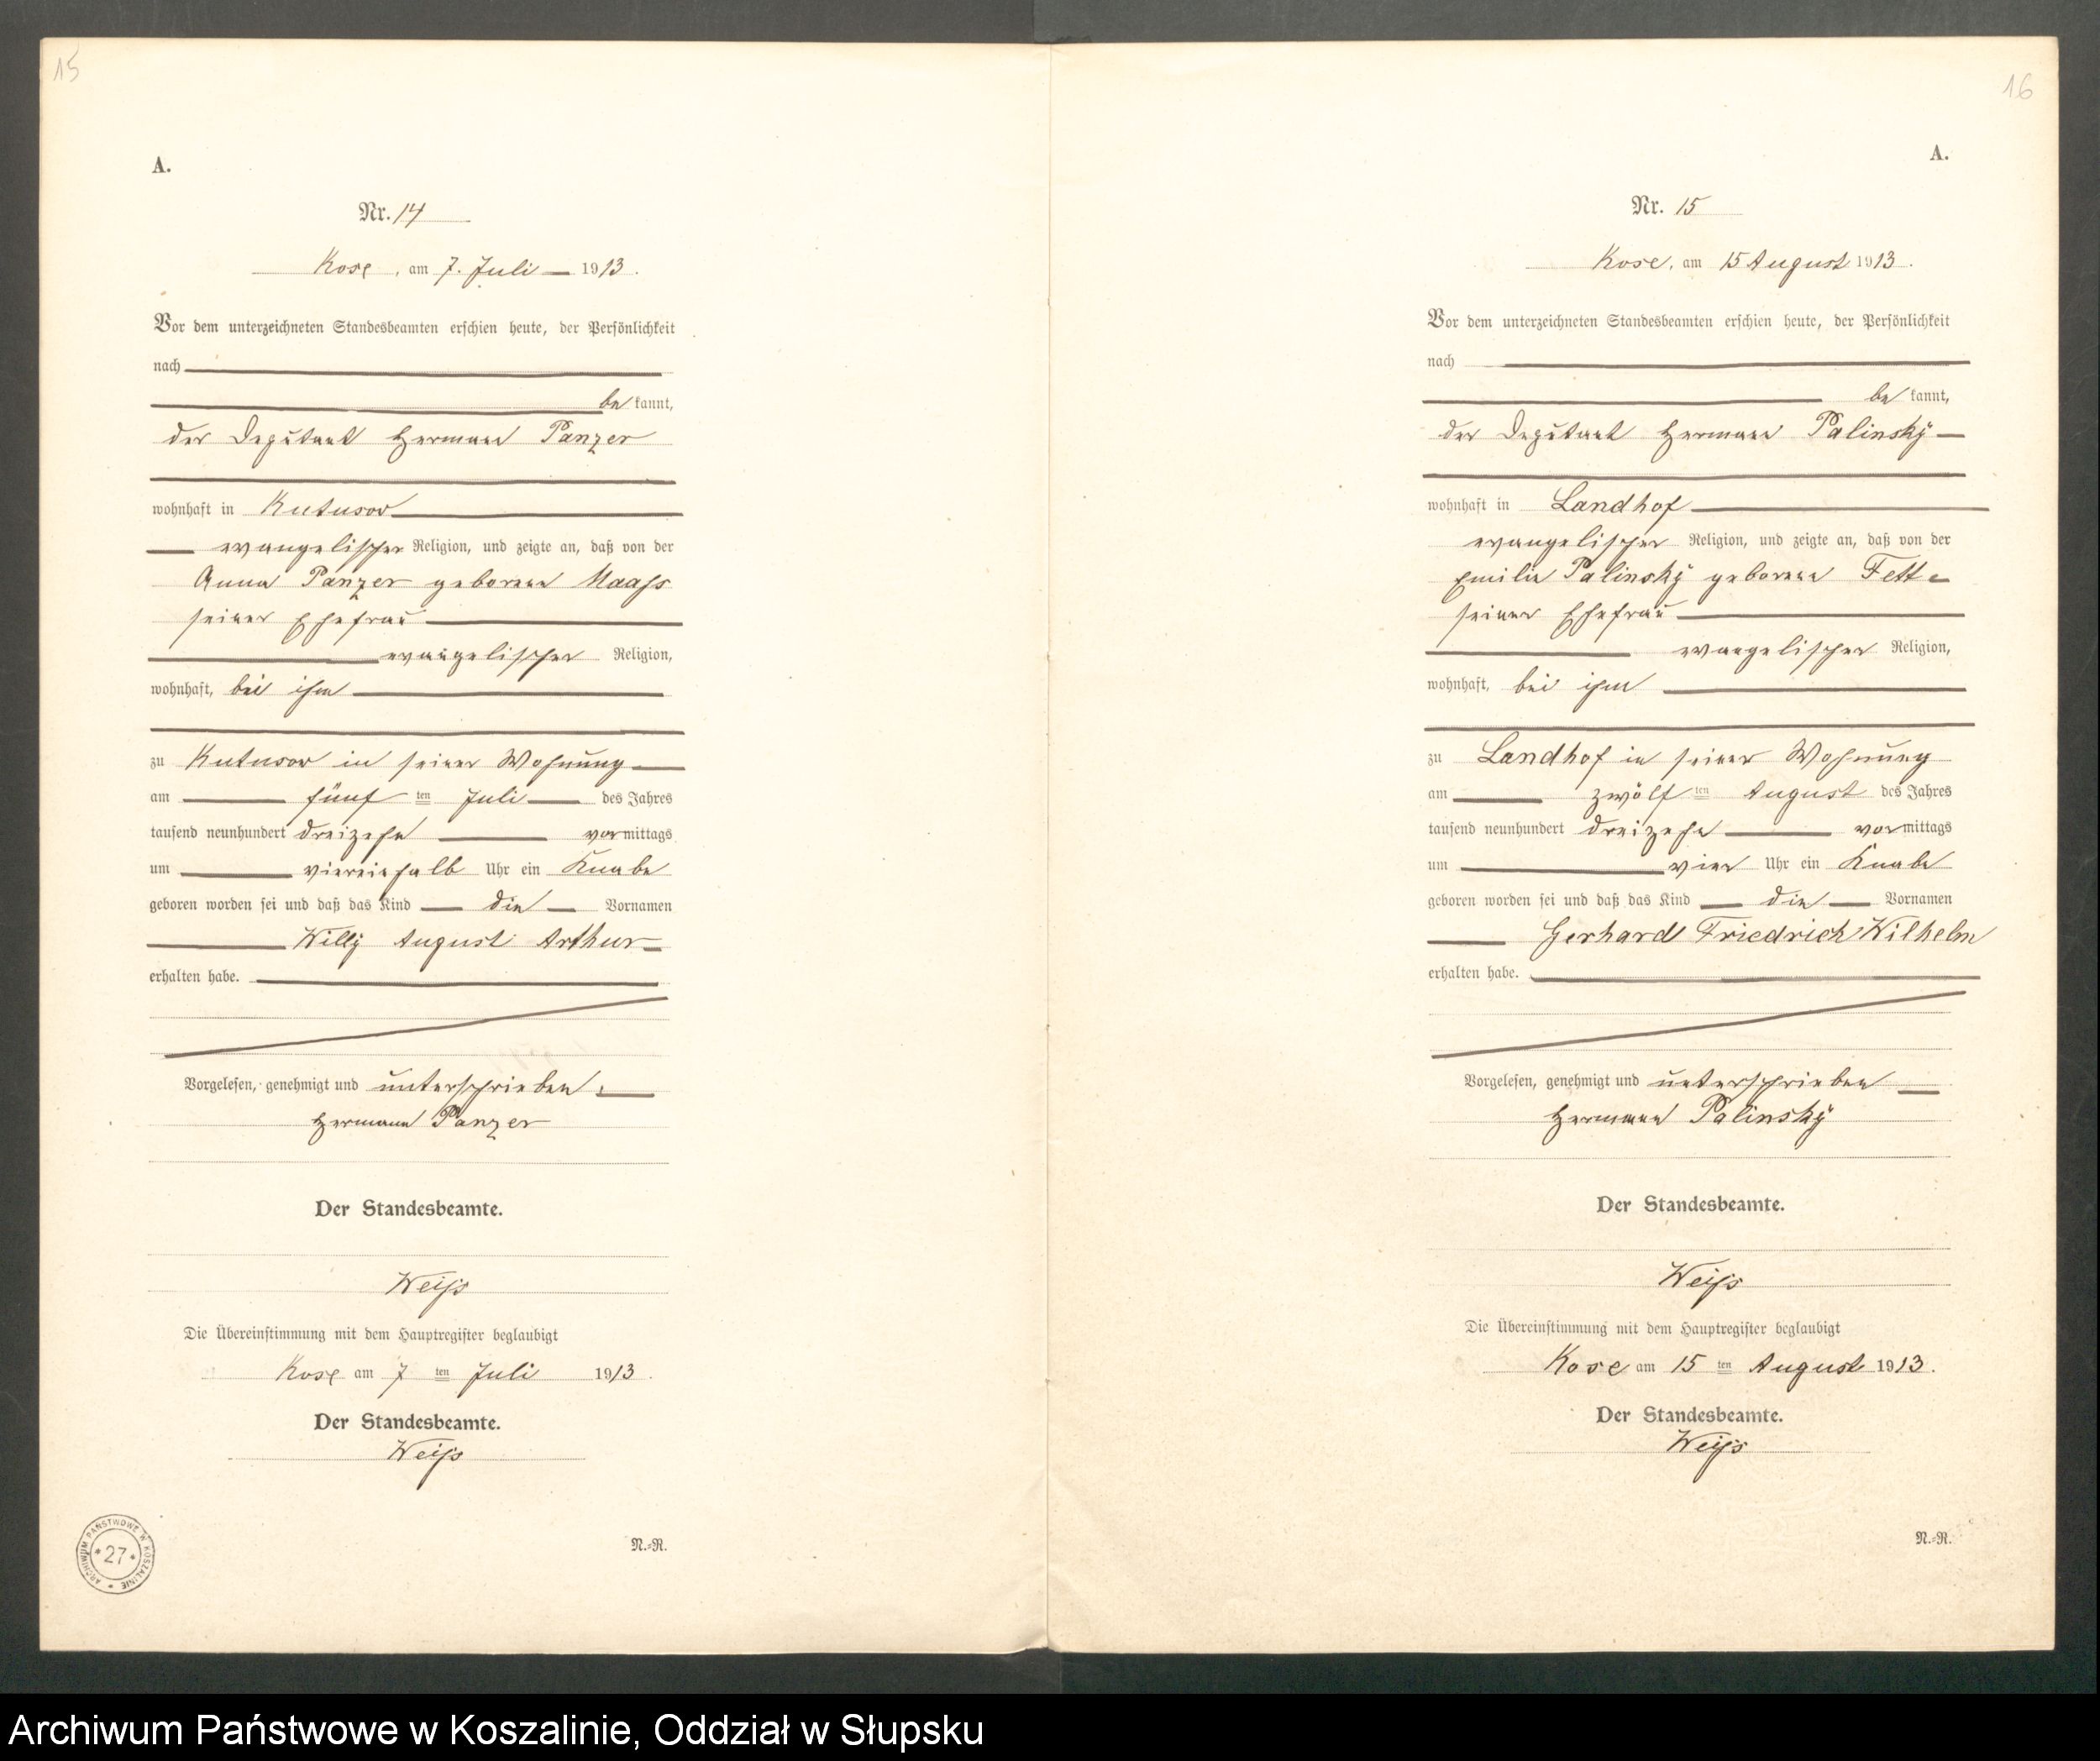 15
A.
Nr. 14
Kose, am 7. Juli 1913.
Vor dem unterzeichneten Standesbeamten erschien heute, der Persönlichkeit
nach
be kannt,
der Deputant Hermann Panzer
wohnhaft in Kutusow
evangelischer Religion, und zeigte an, daß von der
Anna Panzer geborene Maaß
seiner Ehefrau
evangelischer Religion,
wohnhaft, bei ihm
zu Kutusow in seiner Wohnung
am fünf ten Juli des Jahres
tausend neunhundert dreizehn vormittags
um viereinhalb Uhr ein Knabe
geboren worden sei und daß das Kind die Vornamen
Willy August Arthur
erhalten habe.
Vorgelesen, genehmigt und unterschrieben.
Hermann Panzer
Der Standesbeamte.
Weiß
Die Übereinstimmung mit dem Hauptregister beglaubigt
Kose am 7 ten Juli 1913.
Der Standesbeamte.
Weiß
ARCHIWUM PAŃSTWOWE W KOSZALINIE * 27 *
N.-R.
16
A.
Nr. 15
Kose, am 15 August 1913.
Vor dem unterzeichneten Standesbeamten erschien heute, der Persönlichkeit
nach
be kannt,
der Deputant Hermann Palinský
wohnhaft in Landhof
evangelischer Religion, und zeigte an, daß von der
Emilie Palinský geborene Fett
seiner Ehefrau
evangelischer Religion,
wohnhaft, bei ihm
zu Landhof in seiner Wohnung
am zwölf ten August des Jahres
tausend neunhundert dreizehn vormittags
um vier Uhr ein Knabe
geboren worden sei und daß das Kind die Vornamen
Gerhard Friedrich Wilhelm
erhalten habe.
Vorgelesen, genehmigt und unterschrieben
Hermann Palinský
Der Standesbeamte.
Weiß
Die Übereinstimmung mit dem Hauptregister beglaubigt
Kose am 15 ten August 1913.
Der Standesbeamte.
Weiß
N.-R.
Archiwum Państwowe w Koszalinie, Oddział w Słupsku